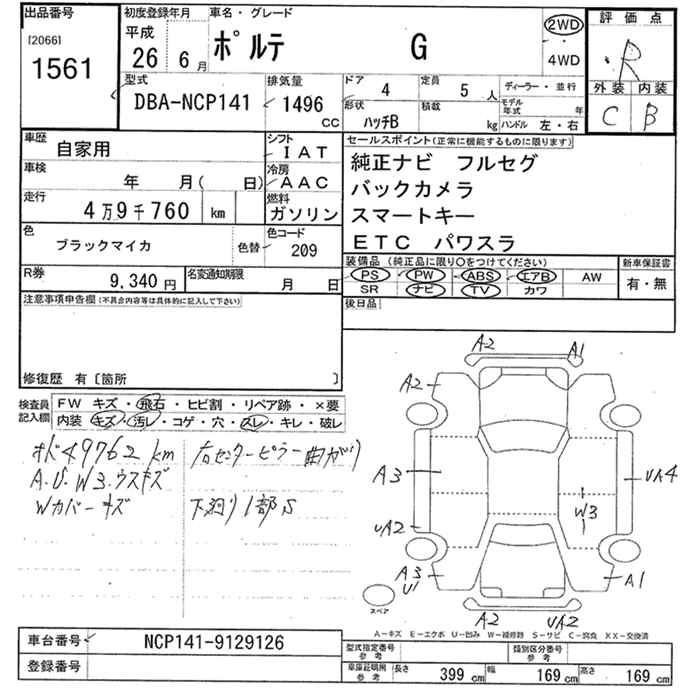 出品番号
[2066]
1561
初度登録年月
平成
26 年 6 月
車名・グレード
ポルテ G
2WD
4WD
評価点
R
外装 内装
C B
型式
DBA-NCP141
排気量
1496
CC
ドア
4
定員
5 人
形状
ハッチB
積載
kg
ディーラー・並行
モデル年式 年
ハンドル 左・右
車歴
自家用
シフト
IAT
車検
年 月( 日)
冷房
AAC
走行
4万9千760 km
燃料
ガソリン
色
ブラックマイカ
色替
色コード
209
R券
9,340 円
名変通知期限
月 日
セールスポイント(正常に機能するものに限ります)
純正ナビ フルセグ
バックカメラ
スマートキー
ETC パワスラ
装備品(純正品に限り○をつけてください)
新車保証書
PS PW ABS エアB AW
SR ナビ TV カワ
有・無
後日品
注意事項申告欄(不具合内容等は具体的に記入して下さい)
修復歴 有〔箇所 〕
検査員記入欄
FW キズ・飛石・ヒビ割・リペア跡・×要
内装 キズ・汚レ・コゲ・穴・スレ・キレ・破レ
49762 km
A.U.W3.ウスキズ
Wカバーキズ
右センターピラー曲がり
下廻り1部S
A2
A1
A2
A3
UA4
W3
UA2
A3
U1
A1
スペア
A2
UA2
A-キズ E-エクボ U-凹み W-補修跡 S-サビ C-腐食 XX-交換済
車台番号
NCP141-9129126
登録番号
型式指定番号
参考
類別区分番号
参考
車庫証明用
参考
長さ 399 cm
幅 169 cm
高さ 169 cm